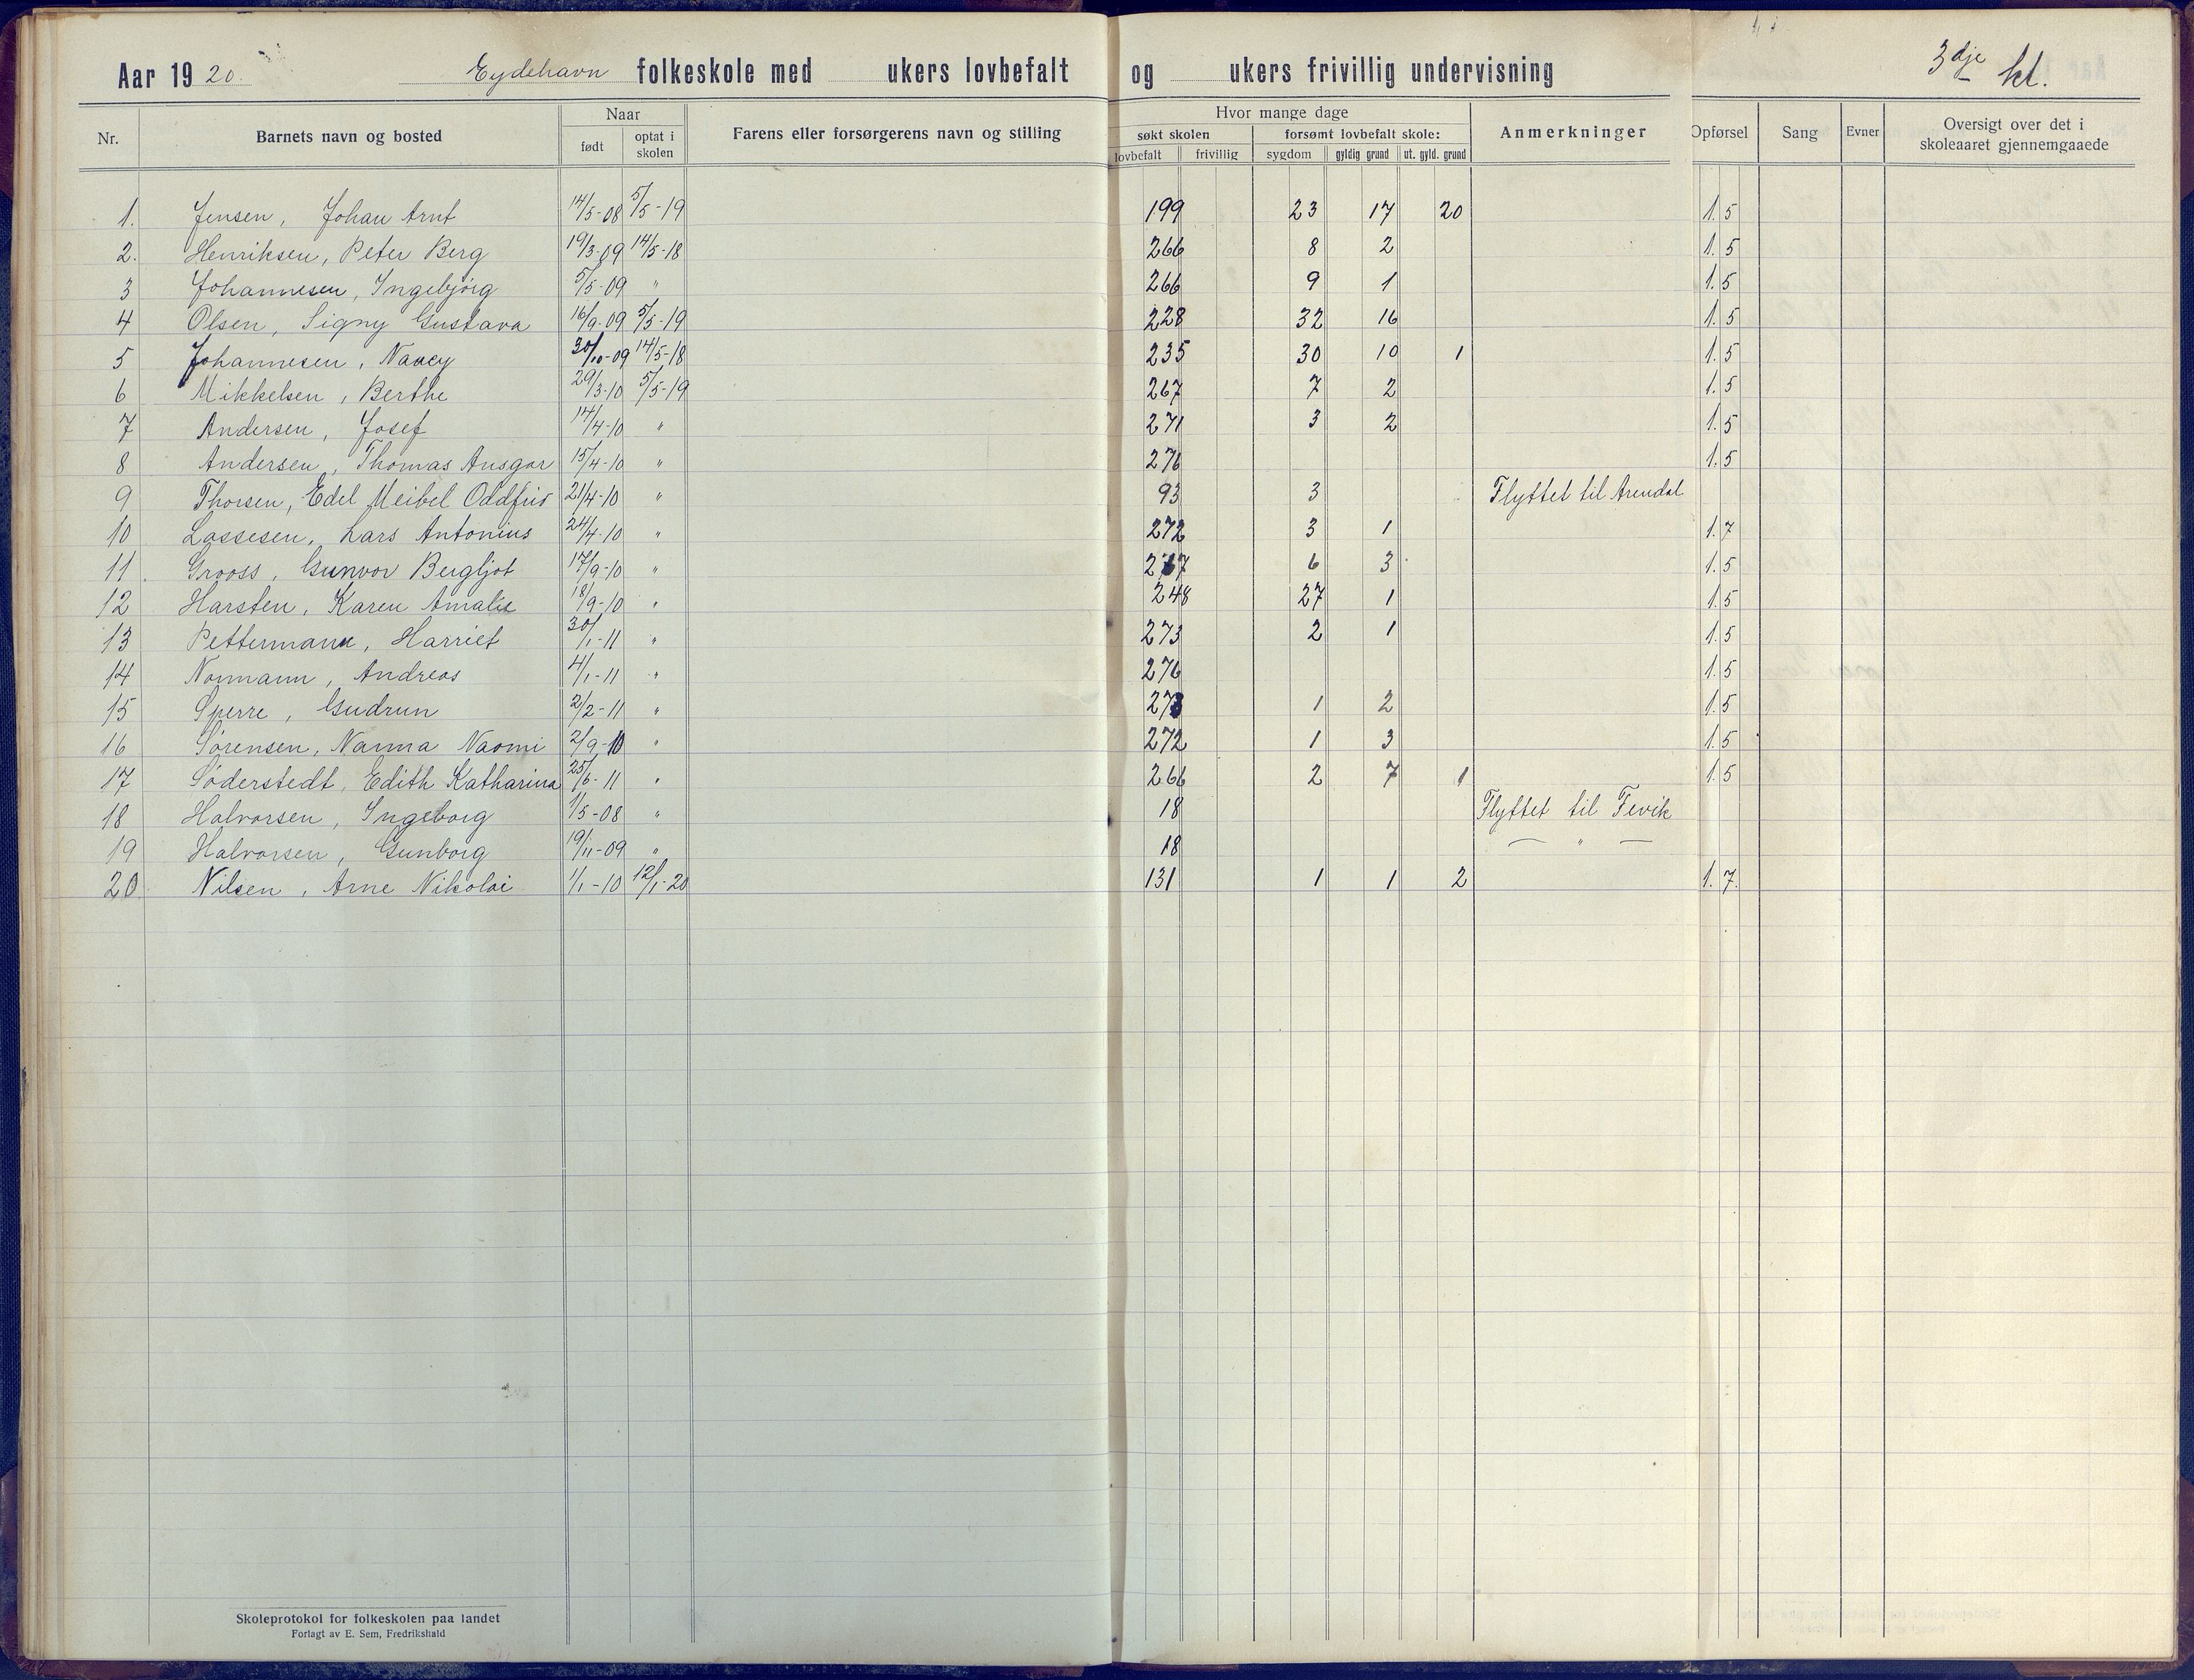 Aar 19 20. Eydehavn folkeskole med ukers lovbefalt og ukers frivillig undervisning 3dje kl.
Nr. Barnets navn og bosted Naar født optat i skolen Farens eller forsørgerens navn og stilling Hvor mange dage søkt skolen lovbefalt frivillig forsømt lovbefalt skole: sygdom gyldig grund ut. gyld. grund Anmerkninger Opførsel Sang Evner Oversigt over det i skoleaaret gjennemgaaede
1. Jensen, Johan Arnt 14/5-08 5/5-19 199 23 17 20 1.5
2. Henriksen, Peter Berg 19/3-09 14/5-18 266 8 2 1.5
3 Johannesen, Ingebjørg 5/5-09 " 266 9 1 1.5
4 Olsen, Signy Gustava 16/9-09 5/5-19 228 32 16 1.5
5 Johannesen, Nancy 30/10-09 14/5-18 235 30 10 1 1.5
6 Mikkelsen, Berthe 29/3-10 5/5-19 267 7 2 1.5
7 Andersen, Josef 14/4-10 " 271 3 2 1.5
8 Andersen, Thomas Ansgar 15/4-10 " 276 1.5
9 Thorsen, Edel Meibel Oddfrid 21/4-10 " 93 3 Flyttet til Arendal
10 Lassesen, Lars Antonius 24/4-10 " 272 3 1 1.7
11. Grooss, Gunvor Bergljot 17/9-10 " 267 6 3 1.5
12 Harsten, Karen Amalie 18/9-10 " 248 27 1 1.5
13 Pettermann, Harriet 30/1-11 " 273 2 1 1.5
14 Normann, Andreas 4/1-11 " 276 1.5
15 Sperre, Gudrun 2/2-11 " 273 1 2 1.5
16 Sørensen, Nanna Naomi 2/9-10 " 272 1 3 1.5
17 Söderstedt, Edith Katharina 25/6-11 " 266 2 7 1 1.5
18 Halvorsen, Ingeborg 1/5-08 " 18 Flyttet til Fevik
19 Halvorsen, Gunborg 19/11-09 " 18 — " —
20. Nilsen, Arne Nikolai 1/1-10 12/1-20 131 1 1 2 1.7.
Skoleprotokol for folkeskolen paa landet
Forlagt av E. Sem, Fredrikshald